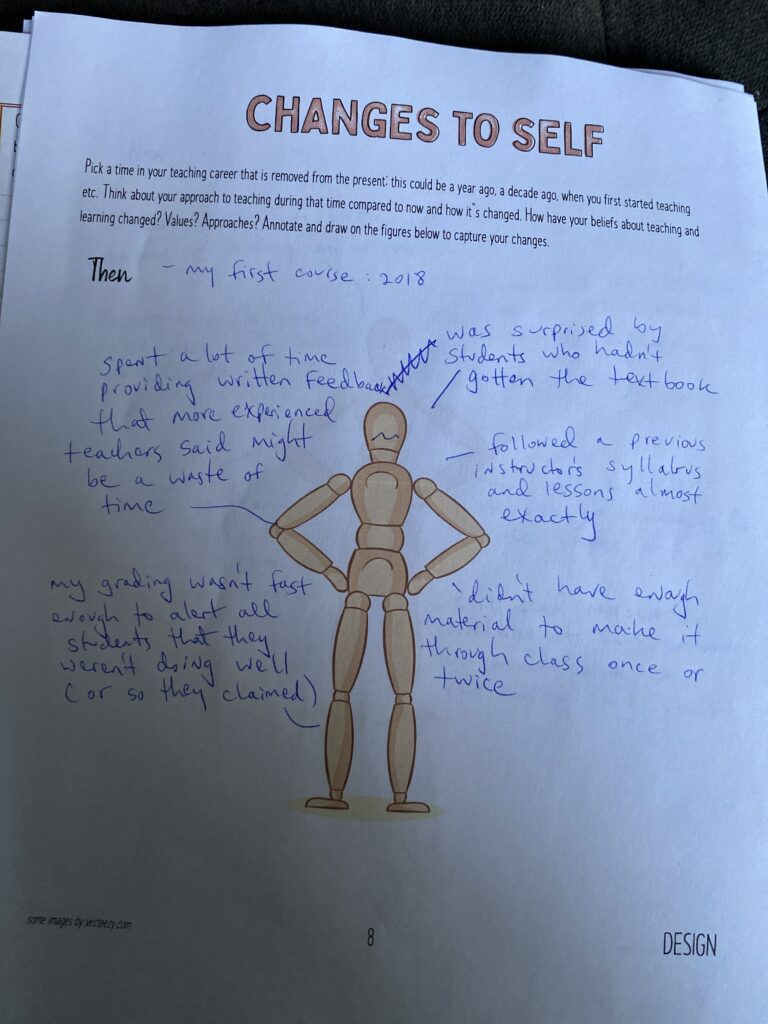 CHANGES TO SELF
Pick a time in your teaching career that is removed from the present; this could be a year ago, a decade ago, when you first started teaching
etc. Think about your approach to teaching during that time compared to now and how it"s changed. How have your beliefs about teaching and
learning changed? Values? Approaches? Annotate and draw on the figures below to capture your changes.
Then - my first course : 2018
spent a lot of time
providing written feedback
that more experienced
teachers said might
be a waste of
time
was surprised by
students who hadn't
gotten the textbook
followed a previous
instructor's syllabus
and lessons almost
exactly
my grading wasn't fast
enough to alert all
students that they
weren't doing well
(or so they claimed)
didn't have enough
material to make it
through class once or
twice
some images by vecteezy.com
8
DESIGN